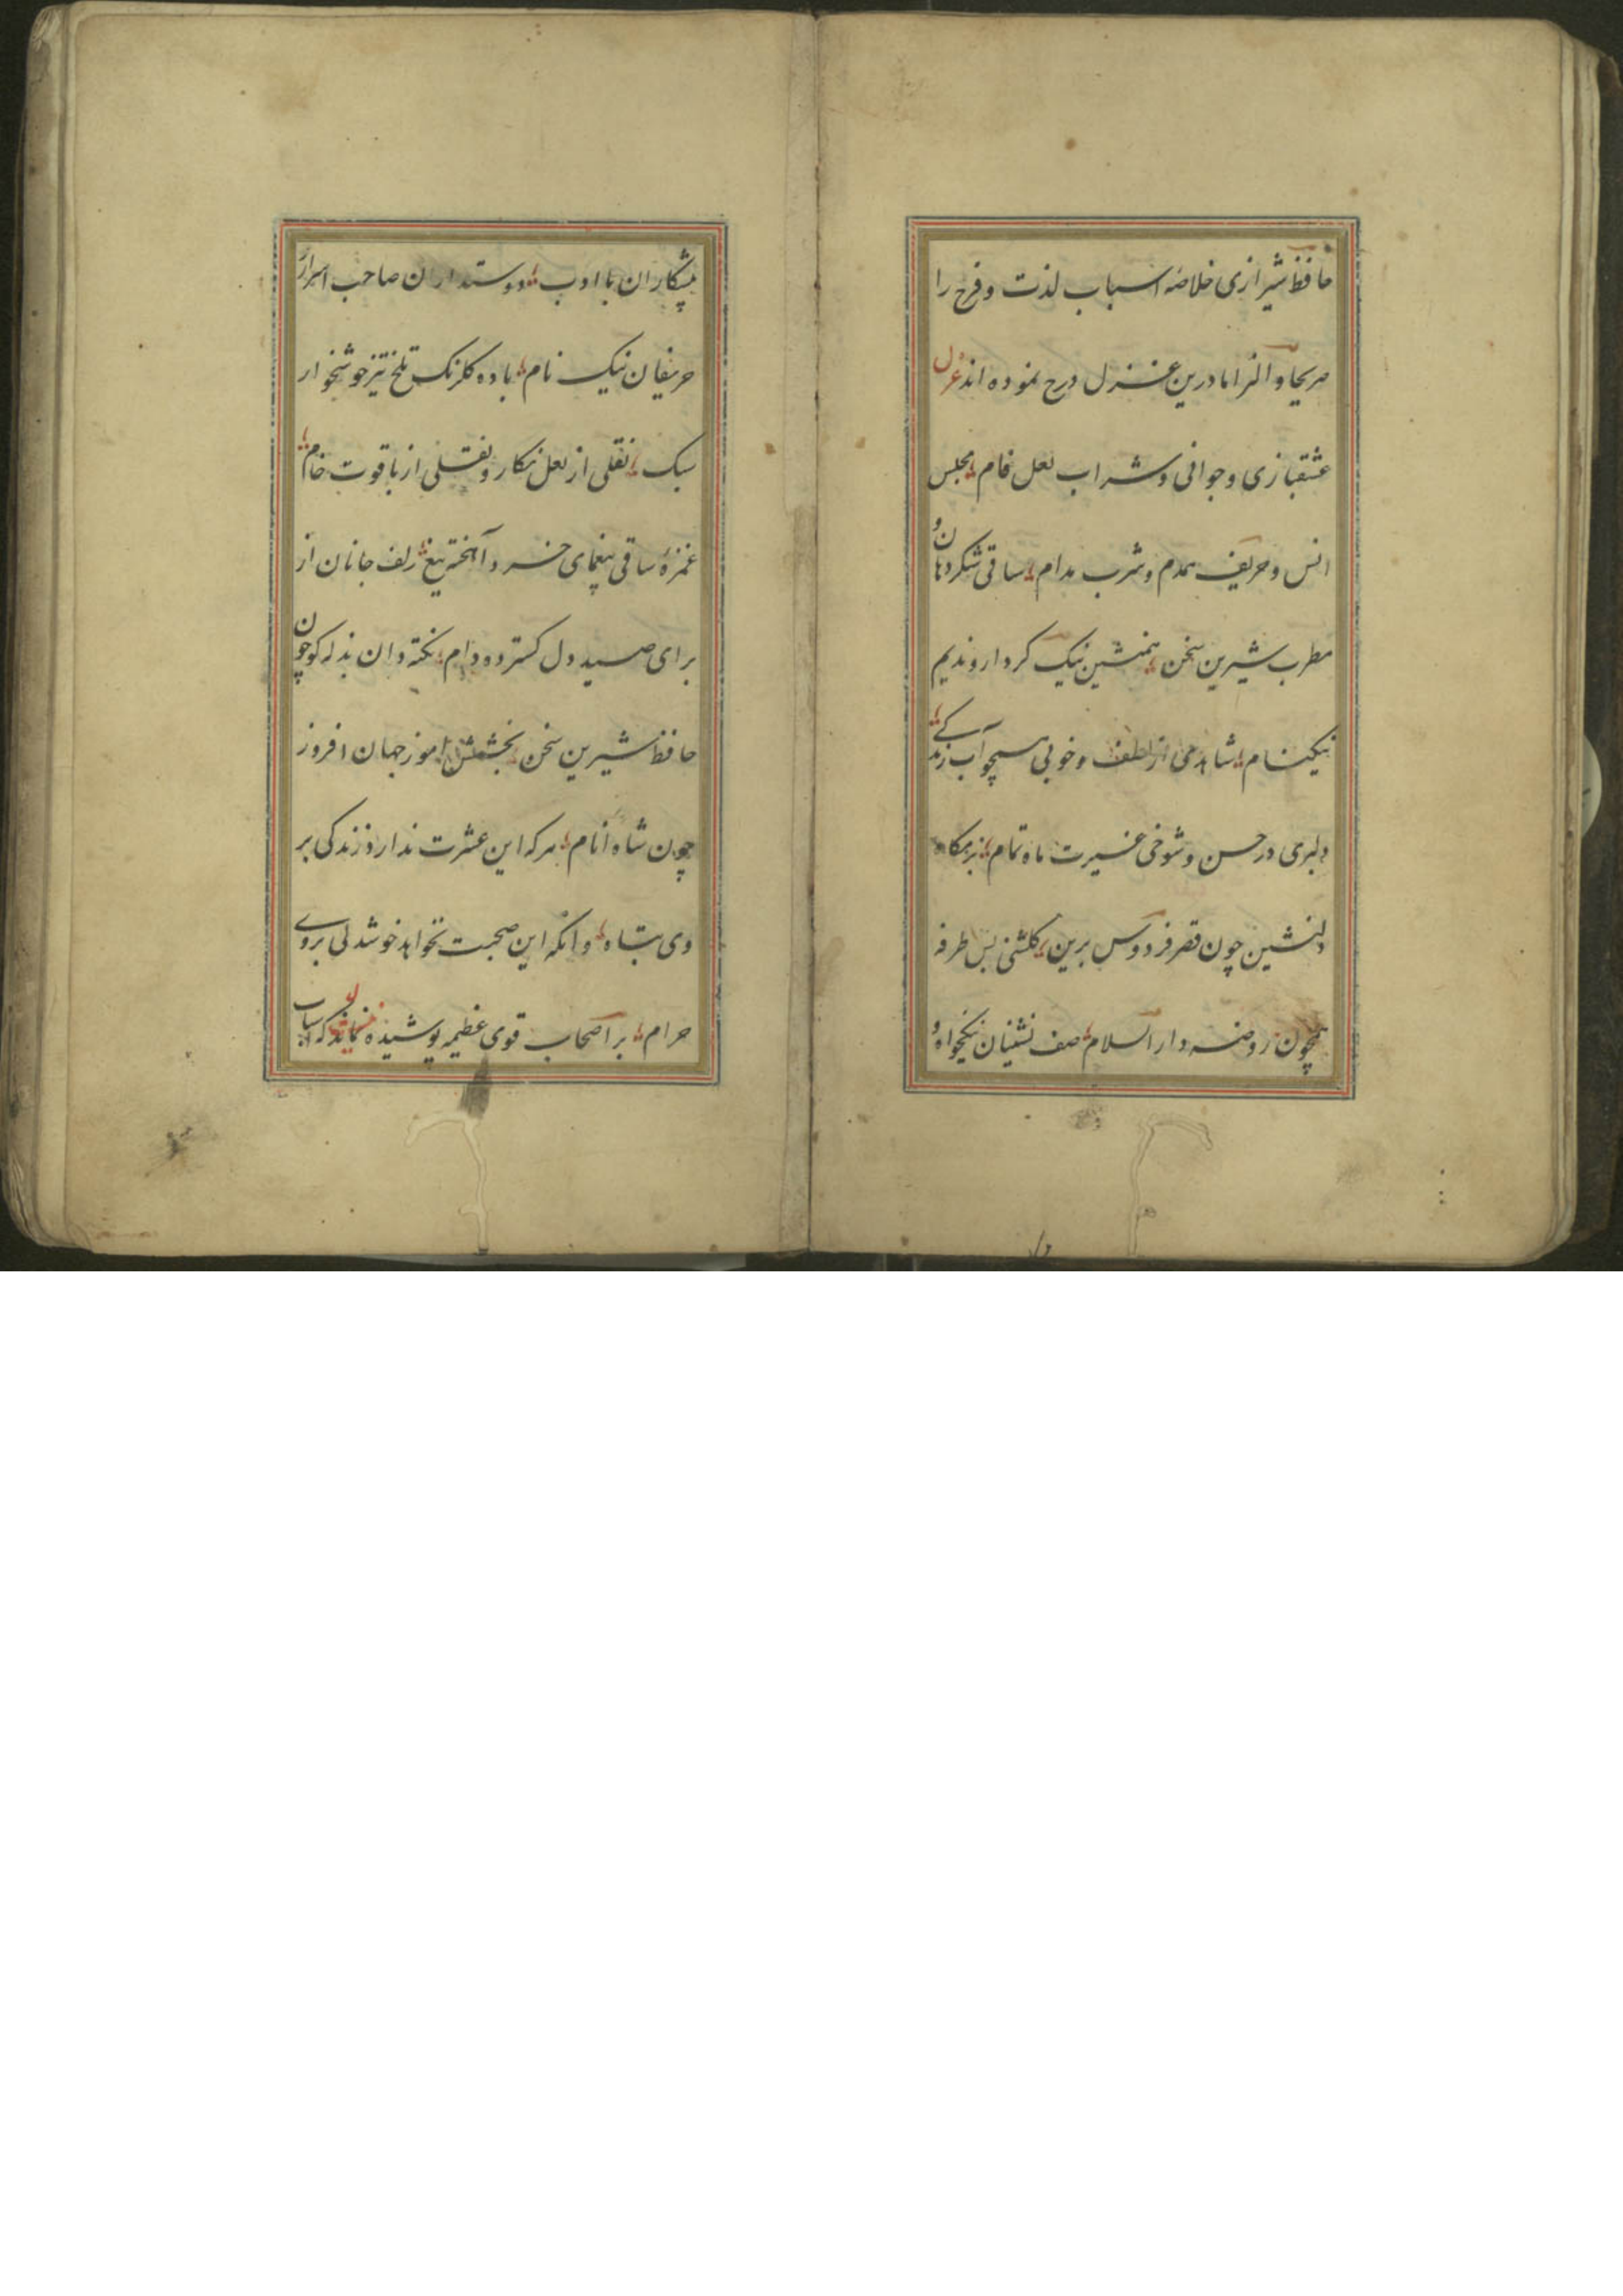 حافظ شیرازی خلاصه اسباب لذت و فرح را
صریحا و التزاما درین غزل درج نموده اند غزل
عشقبازی و جوانی و شراب لعل فام مجلس
انس و حریف همدم و شرب مدام ساقی شکر دهان و
مطرب شیرین سخن همنشین نیک کردار و ندیم
نیکنام شاهدی از لطف و خوبی همچو آب زندگی
دلبری در حسن و شوخی غیرت ماه تمام بزمگاه
دلنشین چون قصر فردوس برین گلشنی بس طرفه
همچون روضه دار السلام صف نشینان نیکخواه و
پیشکاران با ادب دوستداران صاحب اسرار
حریفان نیک نام باده گلرنگ تلخ تیز خوشخوار
سبک نقلی از لعل نگار و نقلی از یاقوت خام
غمزه ساقی بیغمای خرد آهخته تیغ زلف جانان از
برای صید دل گسترده دام نکته دان بذله گو چون
حافظ شیرین سخن بخشش اموز جهان افروز
چون شاه انام هر که این عشرت ندارد زندگی بر
وی تباه وانکه این صحبت نخواهد خوشدلی بروی
حرام بر اصحاب قوی عظیمه پوشیده نماند که اسباب